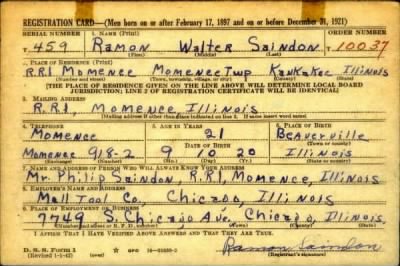 REGISTRATION CARD—(Men born on or after February 17, 1897 and on or before December 31, 1921)
SERIAL NUMBER 1. NAME (Print) ORDER NUMBER
T 459 Ramon Walter Saindon T 10037
(First) (Middle) (Last)
2. PLACE OF RESIDENCE (Print)
R.R.1 Momence Momence Twp Kankakee Illinois
(Number and street) (Town, township, village, or city) (County) (State)
[THE PLACE OF RESIDENCE GIVEN ON THE LINE ABOVE WILL DETERMINE LOCAL BOARD
JURISDICTION; LINE 2 OF REGISTRATION CERTIFICATE WILL BE IDENTICAL]
3. MAILING ADDRESS
R.R.1, Momence, Illinois
[Mailing address if other than place indicated on line 2. If same insert word same]
4. TELEPHONE 5. AGE IN YEARS 6. PLACE OF BIRTH
Momence 21 Beaverville
DATE OF BIRTH (Town or county)
Momence 918-2 9 10 20 Illinois
(Mo.) (Day) (Yr.) (State or country)
7. NAME AND ADDRESS OF PERSON WHO WILL ALWAYS KNOW YOUR ADDRESS
Mr. Philip Saindon R.R.1, Momence, Illinois
8. EMPLOYER'S NAME AND ADDRESS
Mall Tool Co., Chicago, Illinois
9. PLACE OF EMPLOYMENT OR BUSINESS
7749 S. Chicago Ave. Chicago, Illinois
(Number and street or R. F. D. number) (Town) (County) (State)
I AFFIRM THAT I HAVE VERIFIED ABOVE ANSWERS AND THAT THEY ARE TRUE.
D. S. S. Form 1
(Revised 1-1-42) (over)
Ramon Saindon
(Registrant's signature)